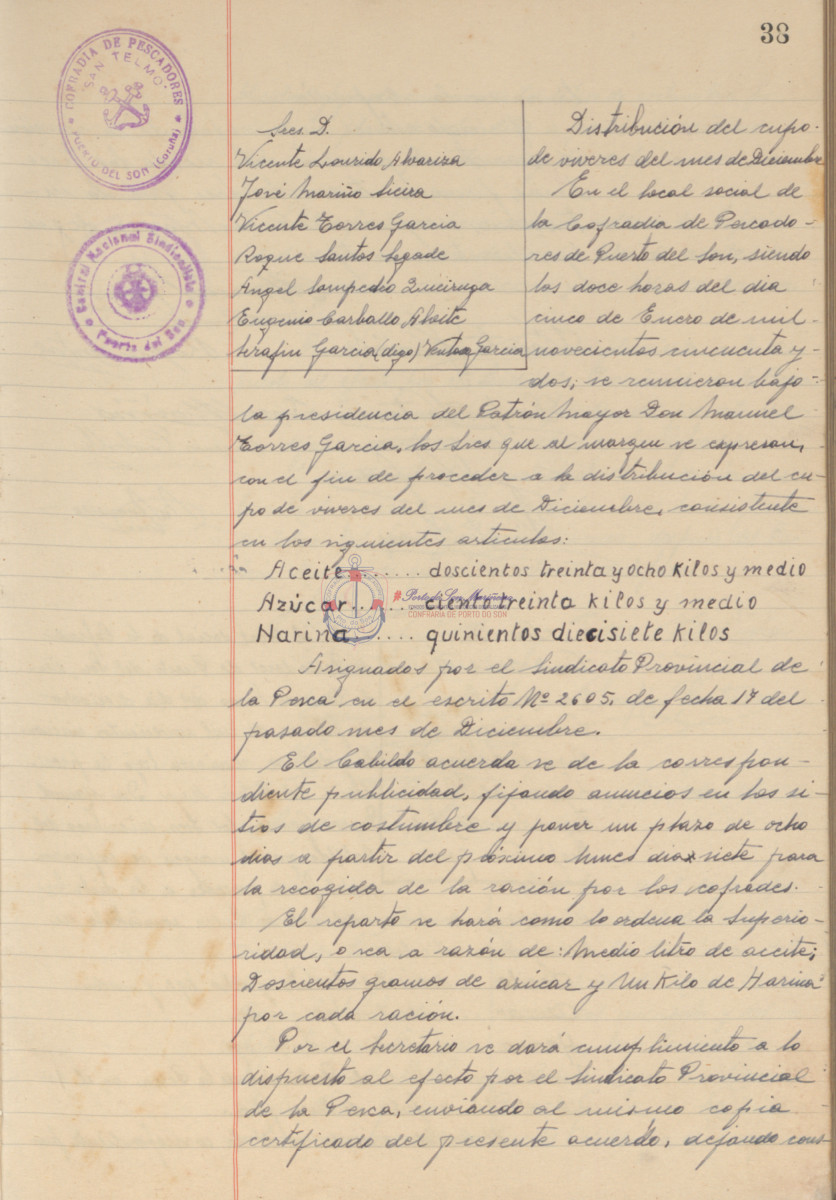 38
COFRADIA DE PESCADORES
"SAN TELMO"
PUERTO DEL SON (Coruña)
Central Nacional Sindicalista
Puerto del Son
Sres. D.
Vicente Lourido Alvariza
José Mariño Sieira
Vicente Torres Garcia
Roque Santos Segade
Angel Sampedro Quiruga
Eugenio Carballo Alsite
Serafin Garcia (digo) Ventosa Garcia
Distribución del cupo
de viveres del mes de Diciembre
En el local social de
la Cofradia de Pescado-
res de Puerto del Son, siendo
las doce horas del dia
cinco de Enero de mil
novecientos cincuenta y
dos; se reunieron bajo
la presidencia del Patrón Mayor Don Manuel
Torres Garcia, los Sres que al margen se expresan,
con el fin de proceder a la distribución del cu-
po de viveres del mes de Diciembre, consistente
en los siguientes articulos:
Aceite....... doscientos treinta y ocho Kilos y medio
Azúcar....... ciento treinta kilos y medio
Harina....... quinientos diecisiete kilos
CONFRARÍA DE PORTO DO SON
Asignados por el Sindicato Provincial de
la Pesca en el escrito Nº 2605, de fecha 17 del
pasado mes de Diciembre.
El Cabildo acuerda se de la correspon-
diente publicidad, fijando anuncios en los si-
tios de costumbre y poner un plazo de ocho
dias a partir del próximo lunes dia siete para
la recogida de la ración por los cofrades.
El reparto se hará como lo ordena la Superio-
ridad, o sea a razón de: Medio litro de aceite;
Doscientos gramos de azúcar y Un Kilo de Harina
por cada ración.
Por el Secretario se dará cumplimiento a lo
dispuesto al efecto por el Sindicato Provincial
de la Pesca, enviando al mismo copia
certificado del presente acuerdo, dejando cons-